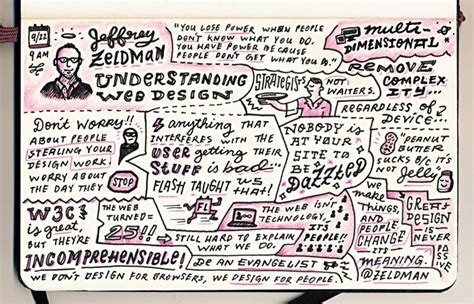 9/22
9 AM
Jeffrey
ZELDMAN
UNDERSTANDING
WEB DESIGN
"YOU LOSE POWER WHEN PEOPLE
DON'T KNOW WHAT YOU DO.
YOU HAVE POWER BECAUSE
PEOPLE DON'T GET WHAT YOU DO."
MULTI-
DIMENSIONAL
STRATEGISTS
NOT
WAITERS.
REMOVE
COMPLEX
ITY...
REGARDLESS OF
DEVICE...
DON'T WORRY!!
ABOUT PEOPLE
STEALING YOUR
DESIGN WORK.
WORRY ABOUT
THE DAY THEY
STOP
anything THAT
INTERFERES WITH THE
USER GETTING THEIR
STUFF is bad...
FLASH TAUGHT US
THAT!
FL
NOBODY IS
AT YOUR
SITE TO
BE
"PEANUT
BUTTER
SUCKS B/C IT'S
NOT
Jelly"
W3C'S
is great,
BUT THEY'RE
INCOMPREHENSIBLE!
THE WEB
TURNED=
25!!
THE WEB ISN'T
TECHNOLOGY,
IT'S
PEOPLE!!
STILL HARD TO EXPLAIN
WHAT WE DO.
BE AN EVANGELIST
WE DON'T DESIGN FOR BROWSERS, WE DESIGN FOR PEOPLE.
WE
MAKE
THINGS,
AND
PEOPLE
CHANGE
ITS
MEANING.
GREAT
DESIGN
IS
NEVER
PASSIVE
@ZELDMAN